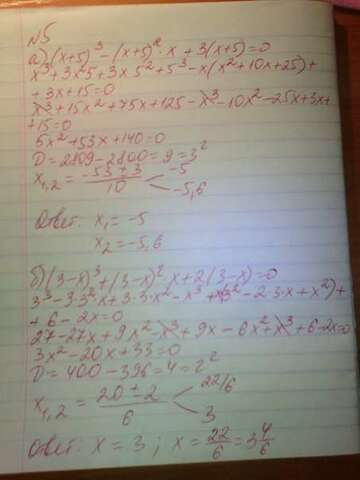 N5
а) (x+5)³-(x+5)²·x+3(x+5)=0
x³+3x²5+3x5²+5³-x(x²+10x+25)+
+3x+15=0
x³+15x²+75x+125-x³-10x²-25x+3x+
+15=0
5x²+53x+140=0
D=2809-2800=9=3²
x₁,₂=(-53±3)/10 -5
-5,6
Ответ: x₁=-5
x₂=-5,6
б) (3-x)³+(3-x)²·x+2(3-x)=0
3³-3·3²x+3·3·x²-x³+x(3²-2·3·x+x²)+
+6-2x=0
27-27x+9x²-x³+9x-6x²+x³+6-2x=0
3x²-20x+33=0
D=400-396=4=2²
x₁,₂=(20±2)/6 22/6
3
Ответ: x=3; x=22/6=3 4/6